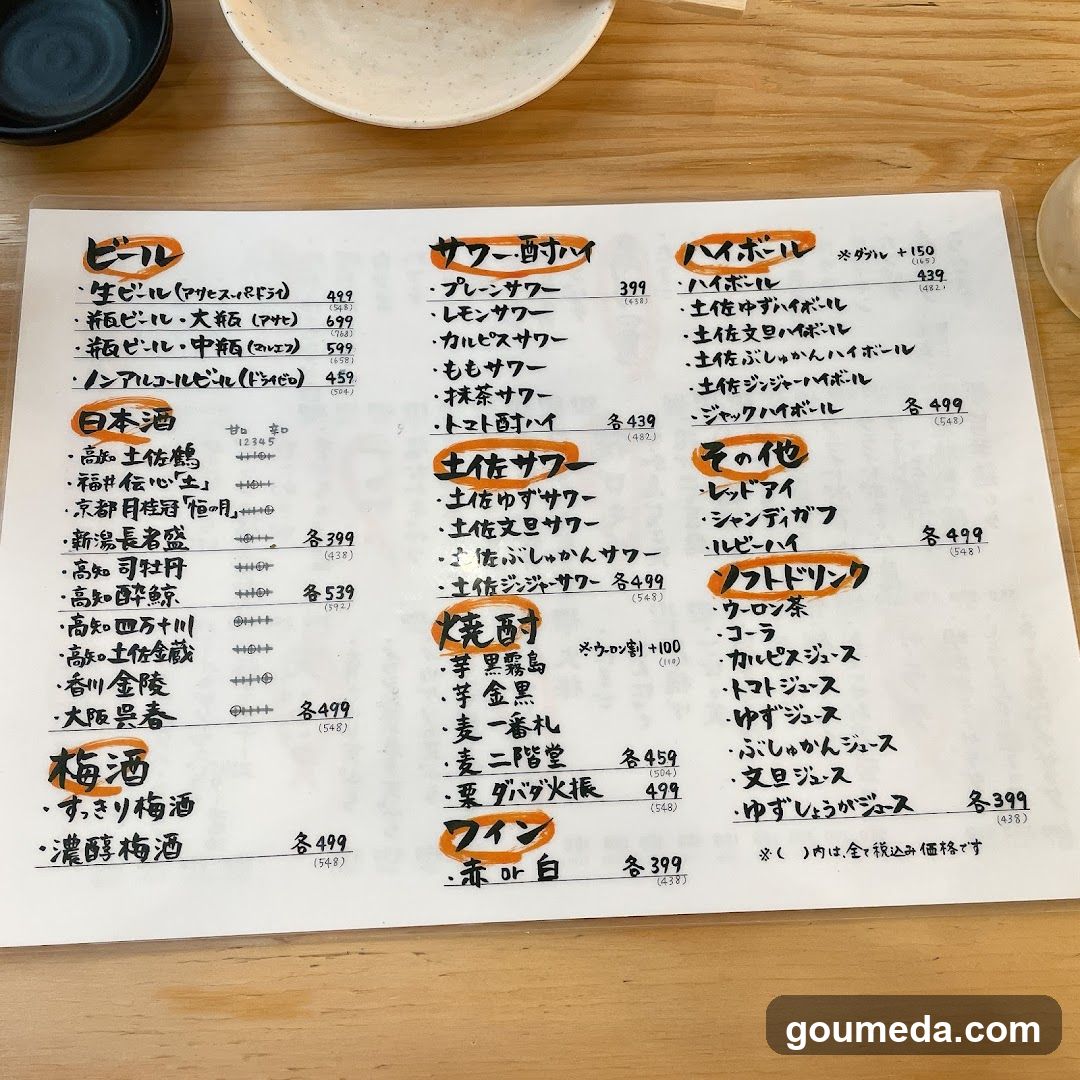 ビール
・生ビール(アサヒスーパードライ) 499
(548)
・瓶ビール・大瓶(アサヒ) 699
(768)
・瓶ビール・中瓶(マルエフ) 599
(658)
・ノンアルコールビール(ドライゼロ) 459
(504)
日本酒
甘口 辛口
12345
・高知 土佐鶴
・福井 伝心「土」
・京都 月桂冠「恒の月」
・新潟 長者盛 各399
(438)
・高知 司牡丹
・高知 酔鯨 各539
(592)
・高知 四万十川
・高知 土佐金蔵
・香川 金陵
・大阪 呉春 各499
(548)
梅酒
・すっきり梅酒
・濃醇梅酒 各499
(548)
サワー・酎ハイ
・プレーンサワー 399
(438)
・レモンサワー
・カルピスサワー
・ももサワー
・抹茶サワー
・トマト酎ハイ 各439
(482)
土佐サワー
・土佐ゆずサワー
・土佐文旦サワー
・土佐ぶしゅかんサワー
・土佐ジンジャーサワー 各499
(548)
焼酎
※ウーロン割 +100
(110)
・芋 黒霧島
・芋 金黒
・麦 一番札
・麦 二階堂 各459
(504)
・栗 ダバダ火振 499
(548)
ワイン
・赤 or 白 各399
(438)
ハイボール ※ダブル +150
(165)
・ハイボール 439
(482)
・土佐ゆずハイボール
・土佐文旦ハイボール
・土佐ぶしゅかんハイボール
・土佐ジンジャーハイボール
・ジャックハイボール 各499
(548)
その他
・レッドアイ
・シャンディガフ
・ルビーハイ 各499
(548)
ソフトドリンク
・ウーロン茶
・コーラ
・カルピスジュース
・トマトジュース
・ゆずジュース
・ぶしゅかんジュース
・文旦ジュース
・ゆずしょうがジュース 各399
(438)
※( )内は、全て税込み価格です
goumeda.com